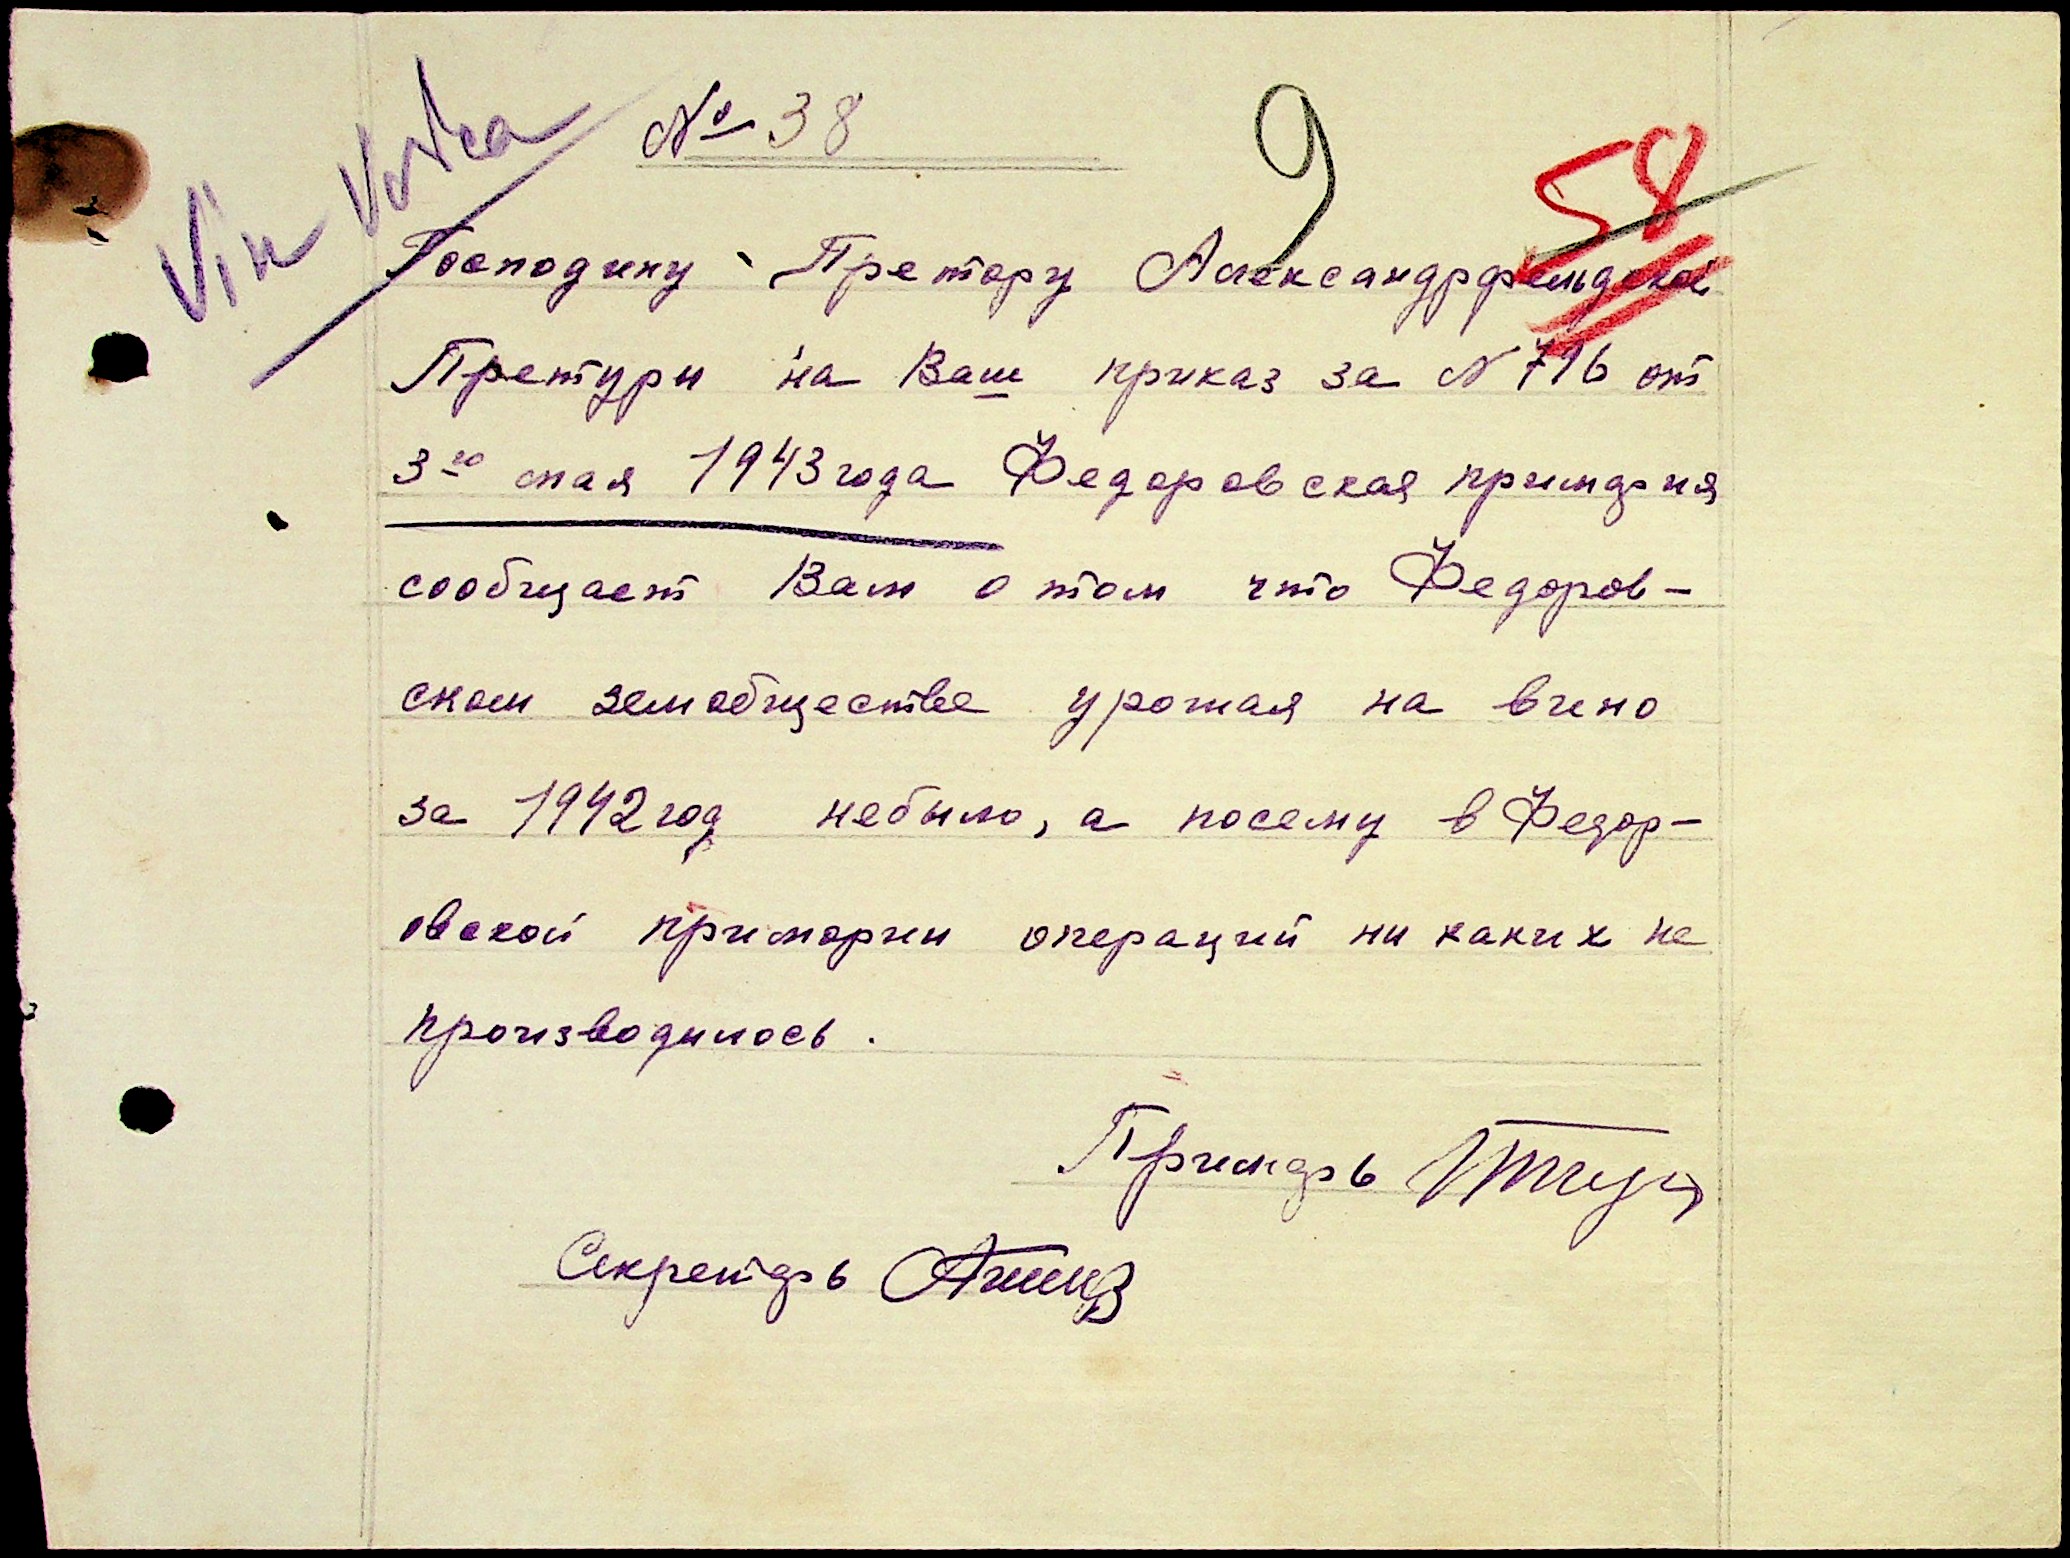 Vin Votca
№ 38
9
58
Господину Претору Александрфельдской
Претуры на Ваш приказ за N 796 от
3го мая 1943 года Федоровская примария
сообщает Вам о том что Федоров-
ском земобществе урожая на вино
за 1942 год небыло, а посему в Федор-
овской примории операций ни каких не
производилось.
Примарь
Секретарь